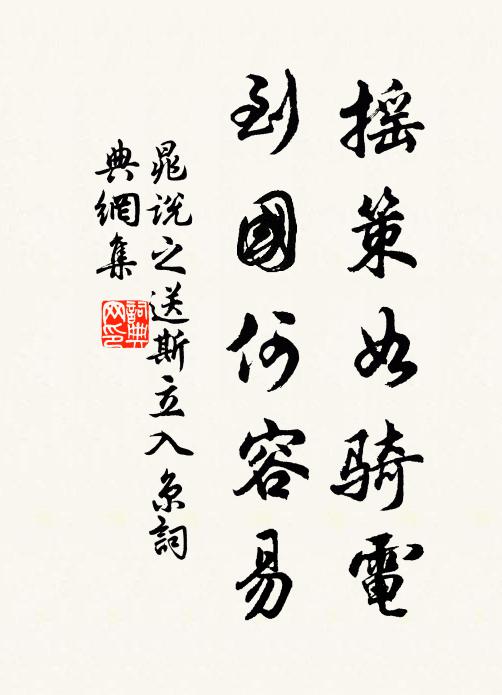 搖策如騎電
到國何容易
晁說之送斯立入京詞
典網集
詞典
网印